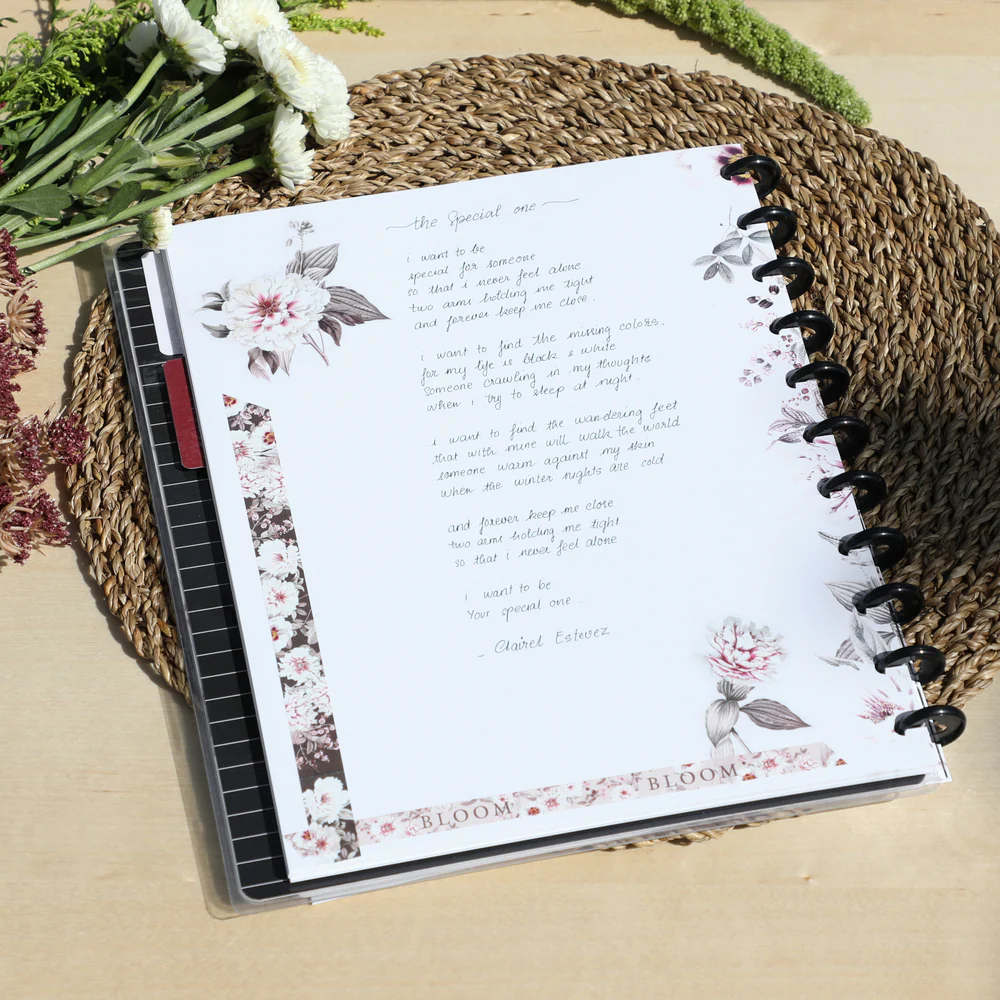 the special one
i want to be
special for someone
so that i never feel alone
two arms holding me tight
and forever keep me close.
i want to find the missing colors.
for my life is black & white
someone crawling in my thoughts
when i try to sleep at night.
i want to find the wandering feet
that with mine will walk the world
someone warm against my skin
when the winter nights are cold
and forever keep me close
two arms holding me tight
so that i never feel alone
i want to be
Your special one.
- Clairel Estevez
BLOOM BLOOM